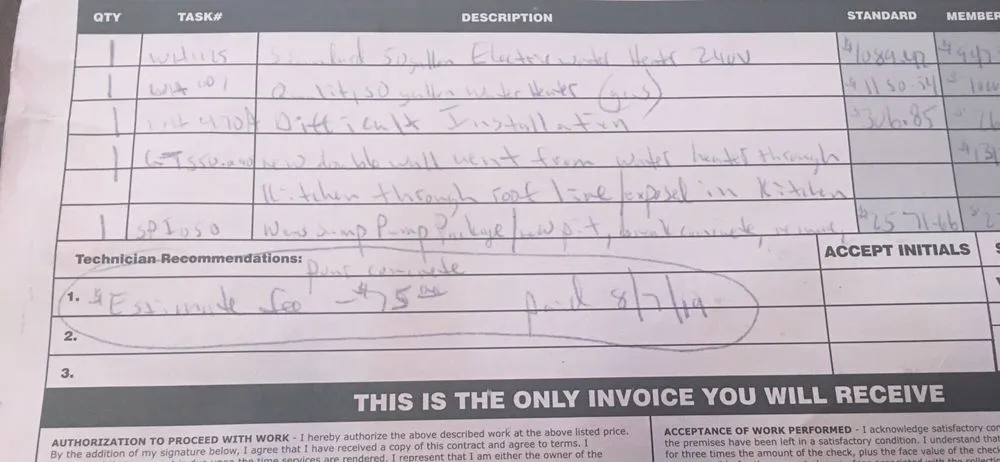 QTY TASK# DESCRIPTION STANDARD MEMBER
1 WH1125 Standard 50 gallon Electric water Heater 240V $1089.42 $947
1 Quality 50 gallon water Heater (gas) $1150.34
1 Difficult Installation $326.85
1 New double wall vent from water heater through
Kitchen through roof line/exposed in Kitchen
1 SPI050 New sump Pump Package/new pit, break concrete, $2571.66
pour concrete
Technician Recommendations: ACCEPT INITIALS
1. Estimate fee -$75.00 paid 8/7/19
2.
3.
THIS IS THE ONLY INVOICE YOU WILL RECEIVE
AUTHORIZATION TO PROCEED WITH WORK - I hereby authorize the above described work at the above listed price.
By the addition of my signature below, I agree that I have received a copy of this contract and agree to terms. I
the time services are rendered. I represent that I am either the owner of the
ACCEPTANCE OF WORK PERFORMED - I acknowledge satisfactory
the premises have been left in a satisfactory condition. I understand that
for three times the amount of the check, plus the face value of the check